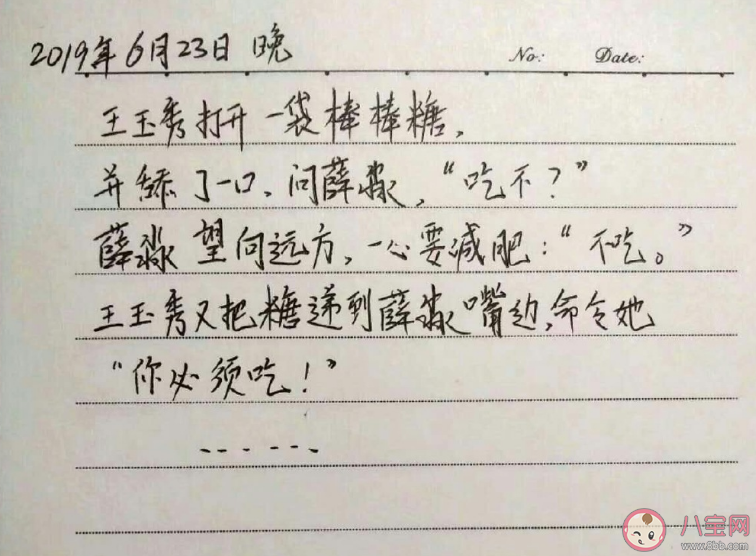 2019年6月23日 晚
No: Date:
王玉秀打开一袋棒棒糖,
并舔了一口,问薛淼,“吃不？”
薛淼望向远方,一心要减肥:“不吃。”
王玉秀又把糖递到薛淼嘴边,命令她
“你必须吃！”
......
八宝网
www.8bb.com